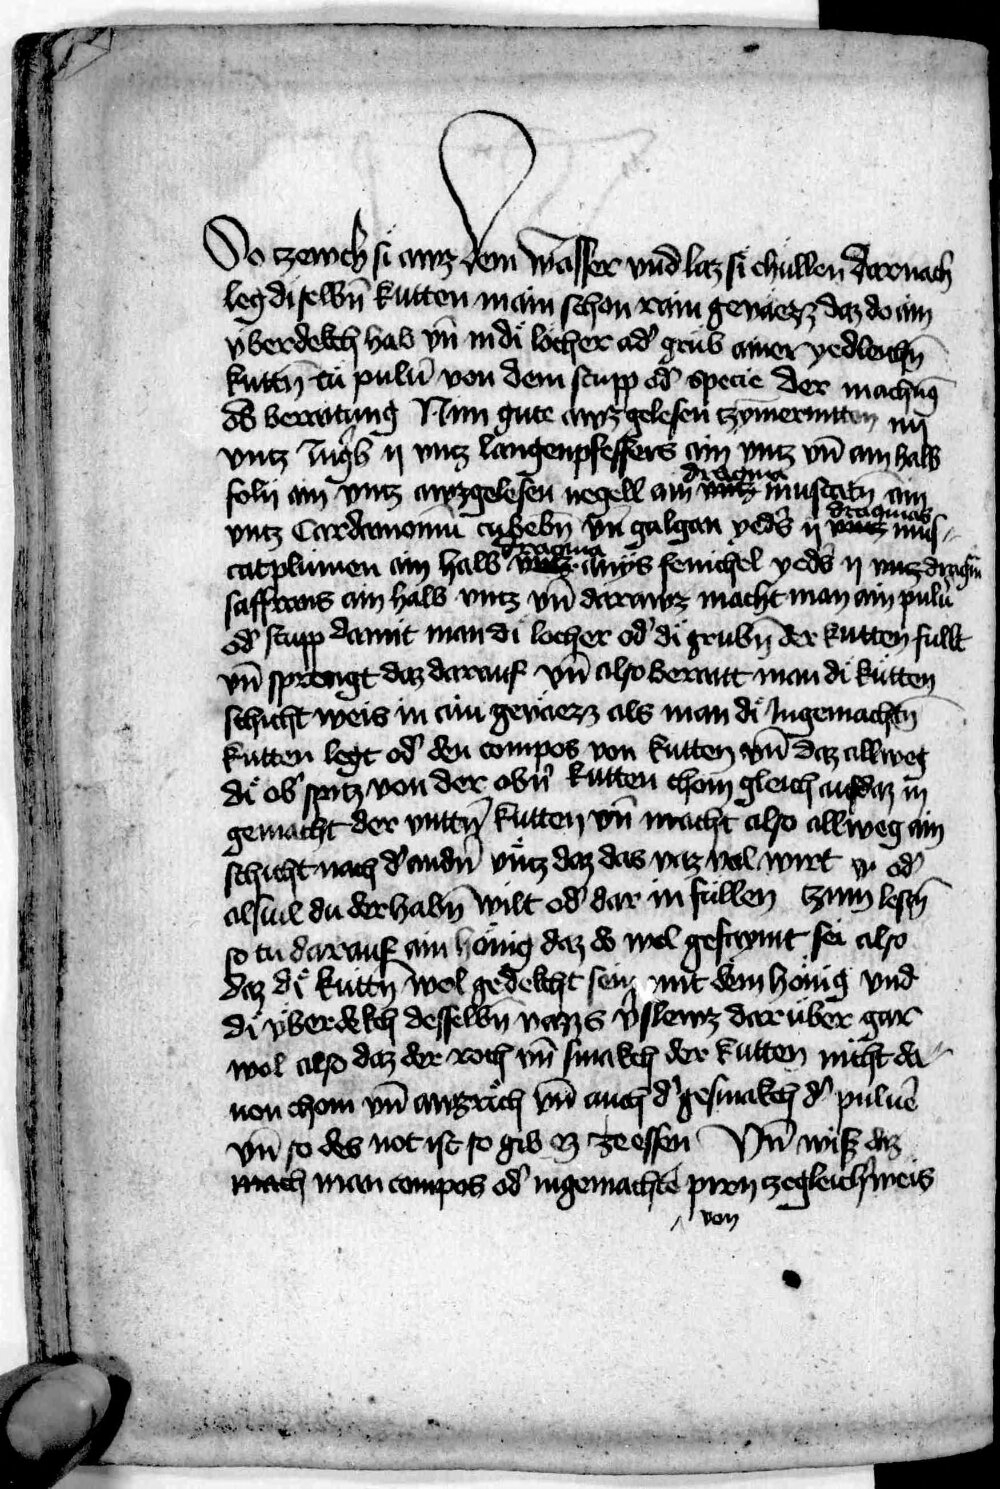 So tzewch si awz dem wasser vnd laz si chullen darnach
leg di selbn̄ kutten in ain schon rain gevaezz daz do ain
vberdekch hab vn̄ in di locher od' grub ainer yedleichn̄
kuttn̄ tu pulu' von dem stupp od' specie der machūg
ob berattung Nim gute awzgelesen tzymerintten iiij
vntz Ingb' ij vntz langenpfeffers ain vntz vn̄ ain halb
folij ain vntz awzgelesen negell ain dragma muscatn̄ ain
vntz Cardamomū cubebn̄ vn̄ galgan yed's ij dragmas mus
catplumen ain halb dragma anys fenichel yed's ij vntz
saffrans ain halb vntz vn̄ darawz macht man ain pulu'
od' stupp damit man di locher od' di grubn̄ der kutten fullt
vn̄ sprengt daz darauf vn̄ also beratt man di kutten
schicht weis in ain gevaezz als man di Ingemachtn̄
kutten legt od' den compos von kutten vn̄ daz allweg
di ob' spitz von der obn' kutten chom gleich auf daz in
gemacht der vnttn̄ kutten vn̄ macht also allweg ain
schicht nach d' andn' vntz daz das vaz vol wirt od'
alsuil du der habn̄ wilt od' dar in fullen tzum lestn̄
so tu darauf ain honig daz do wol gefaymt sei also
daz di kuttn̄ wol gedekcht sein mit dem honig vnd
di vberdekch desselbn̄ vazzs v'slewz daruber gar
wol also daz der roch vn̄ smakch der kutten nicht da
uon chom vn̄ awzrauch vn̄ auch d' gesmakch d' puluē
vn̄ so des not ist so gib ez ze essen Vn̄ wiss daz
mach man compos od' ingemachtē pirn ze gleich' weis
von